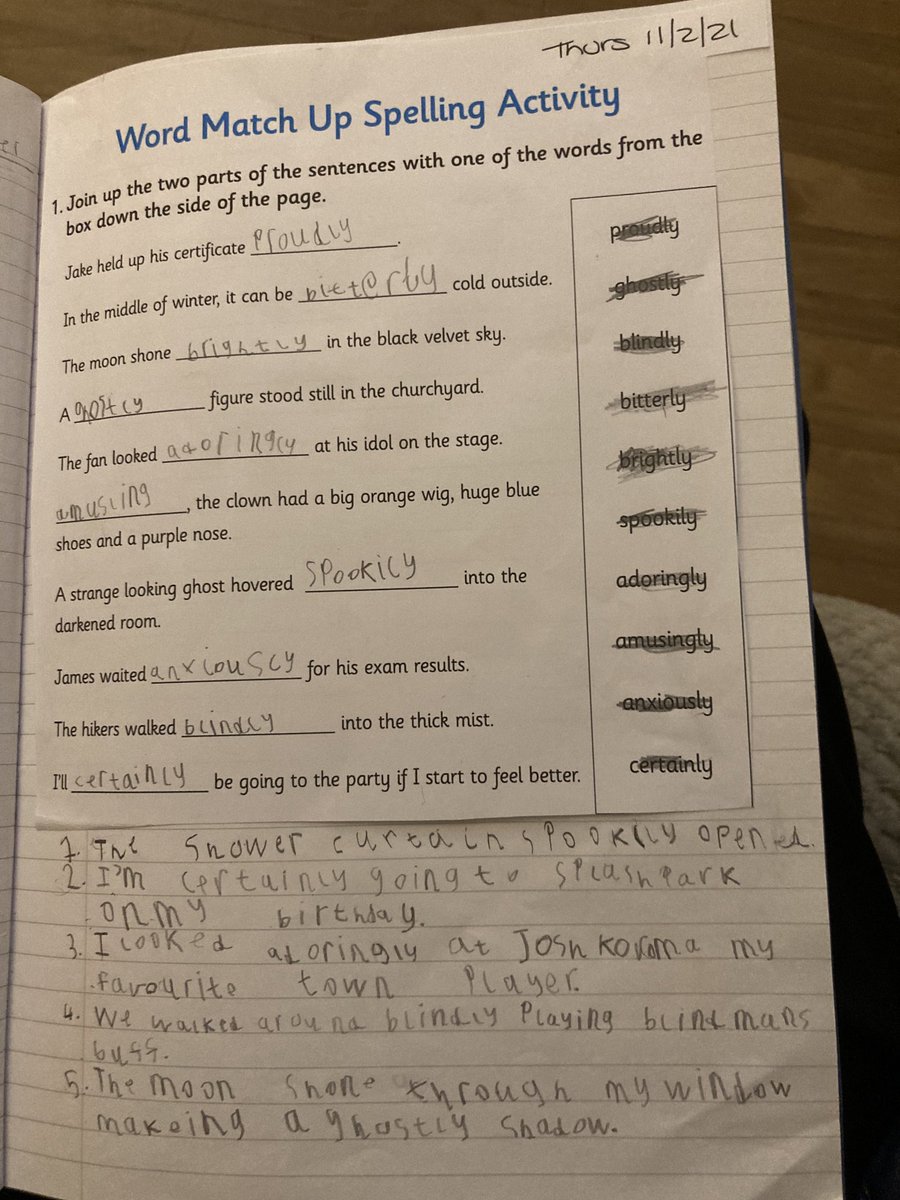 Thurs 11/2/21
Word Match Up Spelling Activity
1. Join up the two parts of the sentences with one of the words from the
box down the side of the page.
Jake held up his certificate proudly.
In the middle of winter, it can be bitterly cold outside.
The moon shone brightly in the black velvet sky.
A ghostly figure stood still in the churchyard.
The fan looked adoringly at his idol on the stage.
amusiing, the clown had a big orange wig, huge blue
shoes and a purple nose.
A strange looking ghost hovered spookily into the
darkened room.
James waited anxiously for his exam results.
The hikers walked blindly into the thick mist.
I'll certainly be going to the party if I start to feel better.
proudly
ghostly
blindly
bitterly
brightly
spookily
adoringly
amusingly
anxiously
certainly
1. The shower curtain spookily opened.
2. I'm certainly going to splashpark
on my birthday.
3. I looked adoringly at Josh Koroma my
favourite town player.
4. We walked around blindly playing blind mans
buff.
5. The moon shone through my window
makeing a ghostly shadow.